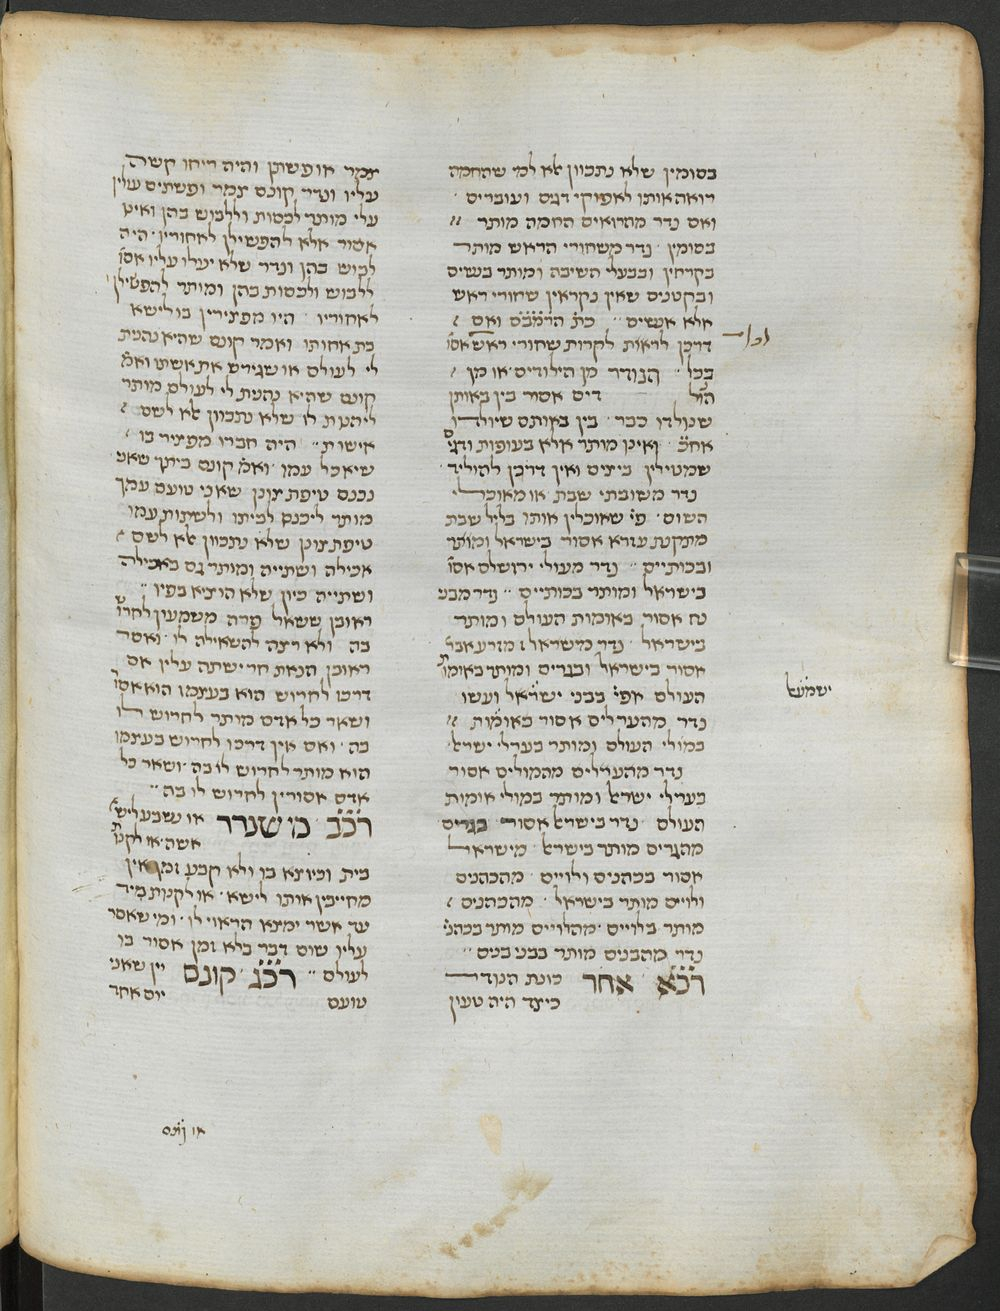 בסומין שלא נתכוון אלא למי שהחמה
רואה אותו לאפוקי דגים ועוברים ·
ואם נדר מהרואים החמה מותר
בסומין · נדר משחורי הראש מותר
בקרחין ובבעלי השיבה ומותר בנשים
ובקטנים שאין נקראין שחורי ראש
אלא אנשים · כת׳ הרמב״ם ואם
דרכן לקרות שחורי ראש אסו׳
בכל · הנודר מן הילודים או מן
הול דים אסור בין באותן
שנולדו כבר · בין באותם שיולדו
אח״כ · ואינו מותר אלא בעופות ודגי׳
שמטילין ביצים ואין דרכן להוליד ·
נדר משובתי שבת או מאוכלי
השום · פי׳ שאוכלין אותו בליל שבת
מתקנת עזרא אסור בישראל ומותר
ובכותיים · נדר מעולי ירושלם אסו׳
בישראל ומותר בכותיים · נדר מבני
נח אסור באומות העולם ומותר
בישראל · נדר מישראל ומזרע אבר׳
אסור בישראל ובגרים ומותר באומו׳
העולם אפי׳ בבני ישראל ועשו
ישמעאל
נדר מהערלים אסור באומות
במולי העולם ומותר בערלי ישראל
נדר מהערלים מהמולים אסור
בערלי ישראל ומותר במולי אומות
העולם · נדר בישראל אסור בגרים
מהגרים מותר בישראל · מישראל
אסור בכהנים ולויים · מהכהנים
ולוים מותר בישראל · מהכהנים
מותר בלויים · מהלויים מותר בכהני׳
נדר מהבנים מותר בבני בנים ·
רכ״א אחר כונת הנודר
כיצד היה טעון
צמר או פשתן והיה ריחו קשה
עליו ונדר קונם צמר ופשתים עולין
עלי מותר לכסות וללבוש בהן ואינו
אסור אלא להפשילן לאחוריו · היה
לבוש בהן ונדר שלא יעלו עליו אסו׳
ללבוש ולכסות בהן ומותר להפשילן
לאחוריו · היו מפצירין בו לישא
בת אחותו ואמר קונם שהיא נהנית
לי לעולם או שגירש את אשתו ואמ׳
קונם שהיא נהנית לי לעולם מותר
ליהנות לו שלא נתכוון אלא לשם
אישות · היה חברו מפציר בו
שיאכל עמו · ואמ׳ קונם ביתך שאני
נכנס טיפת צונן שאני טועם עמך
מותר ליכנס לביתו ולשתות עמו
טיפת צונן שלא נתכוון אלא לשם
אכילה ושתייה ומותר גם באכילה
ושתייה כיון שלא הוציא בפיו ·
ראובן ששאל פרה משמעון לחרוש
בה · ולא רצה להשאילה לו · ואסר
ראובן הנאת חרישתה עליו אם
דרכו לחרוש הוא בעצמו הוא אסור
ושאר כל אדם מותר לחרוש לו
בה · ואם אין דרכו לחרוש בעצמו
הוא מותר לחרוש לו בה · ושאר כל
אדם אסורין לחרוש לו בה ·
רכ״ב מי שנדר או נשבע לישא
אשה או לקנות
בית וכיוצא בו ולא קבע זמן אין
מחייבין אותו לישא · או לקנות מיד
עד אשר ימצא הראוי לו · ומי שאסר
עליו שום דבר בלא זמן אסור בו
לעולם · רכ״ג קונם יין שאני
טועם יום אחד